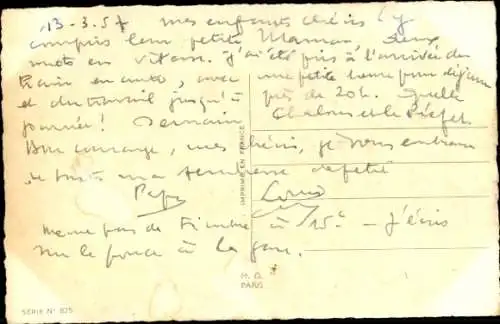 13-3.57 mes enfants chéris (y
compris leur petite Maman deux
mots en vitesse. j'ai été pris à l'arrivée du
train en auto, avec une petite heure pour déjeuner
et du travail jusqu'à près de 20h. Quelle
journée! Demain Chalons et le Préfet.
Bon courage, mes chéris, je vous embrasse
de toute ma tendresse
Papy Louis
Même pas de timbre à 15c - J'écris
sur le pouce à la gare.
IMPRIMÉ EN FRANCE
M. D.
PARIS
SÉRIE N° 825